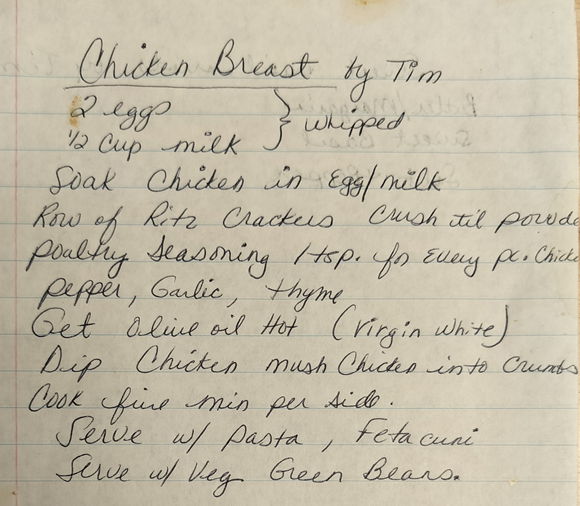 Chicken Breast by Tim
2 eggs
1/2 cup milk } whipped
Soak Chicken in Egg/milk
Row of Ritz Crackers Crush til powde
poaltry Seasoning 1 tsp. for Every pc. Chicke
pepper, Garlic, thyme
Get Olive oil Hot (Virgin White)
Dip Chicken mush Chicken into Crumbs
Cook five min per side.
Serve w/ pasta, Fetacuni
Serve w/ Veg Green Beans.